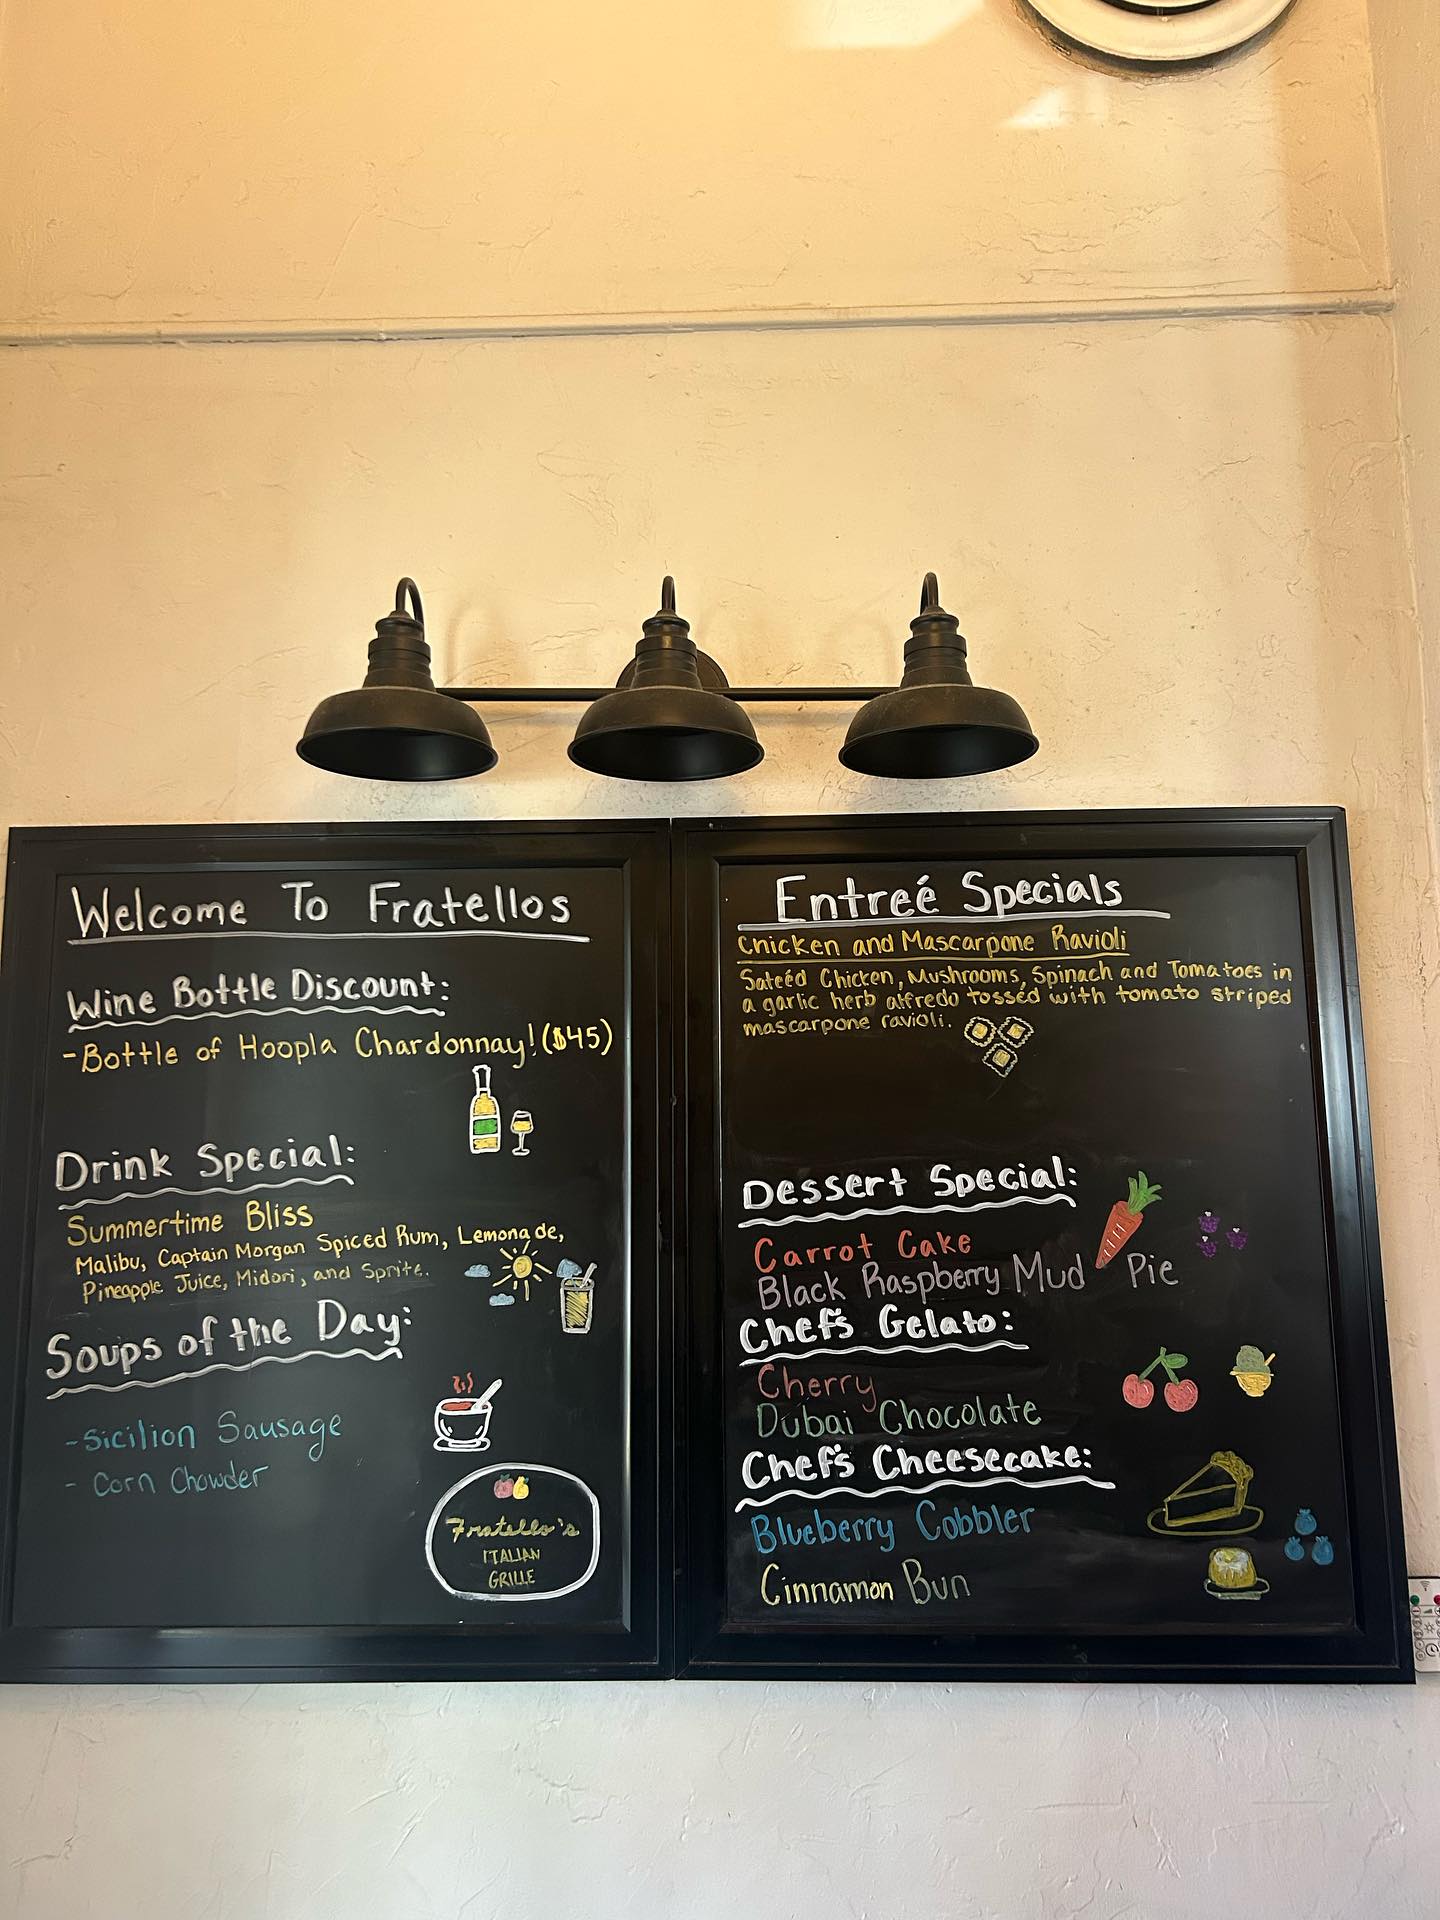 Welcome To Fratellos
Wine Bottle Discount:
-Bottle of Hoopla Chardonnay! ($45)
Drink Special:
Summertime Bliss
Malibu, Captain Morgan Spiced Rum, Lemonade,
Pineapple Juice, Midori, and Sprite.
Soups of the Day:
-Sicilion Sausage
- Corn Chowder
Fratello's
ITALIAN
GRILLE
Entreé Specials
Chicken and Mascarpone Ravioli
Sateéd Chicken, Mushrooms, Spinach and Tomatoes in
a garlic herb alfredo tossed with tomato striped
mascarpone ravioli.
Dessert Special:
Carrot Cake
Black Raspberry Mud Pie
Chef's Gelato:
Cherry
Dubai Chocolate
Chef's Cheesecake:
Blueberry Cobbler
Cinnamon Bun